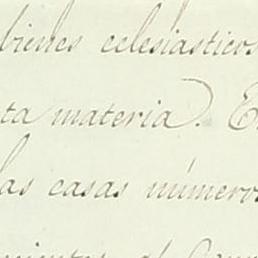 bienes eclesiasticos
ta materia. E
las casas números